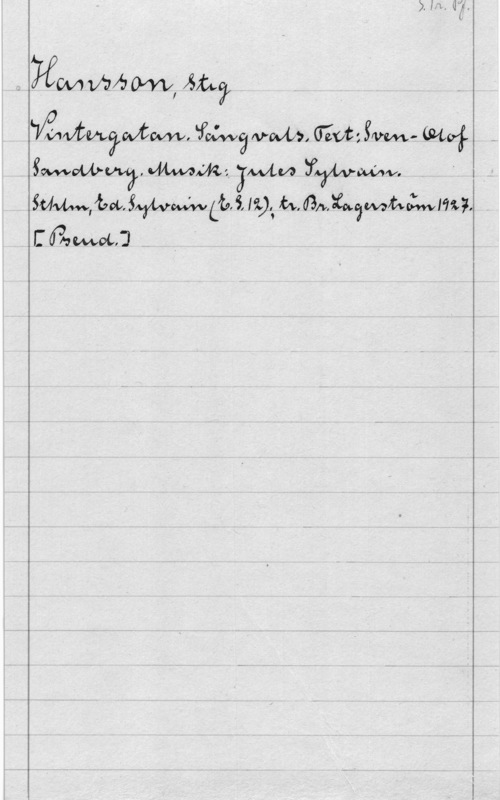 S. Tr. Pf.
Hansson, Stig
Vintergatan. Sångvals. Text: Sven-Olof
Sandberg. Musik: Jules Sylvain.
Sthlm, Ed. Sylvain (E.S. 12); tr. Br. Lagerström 1927.
[Pseud.]